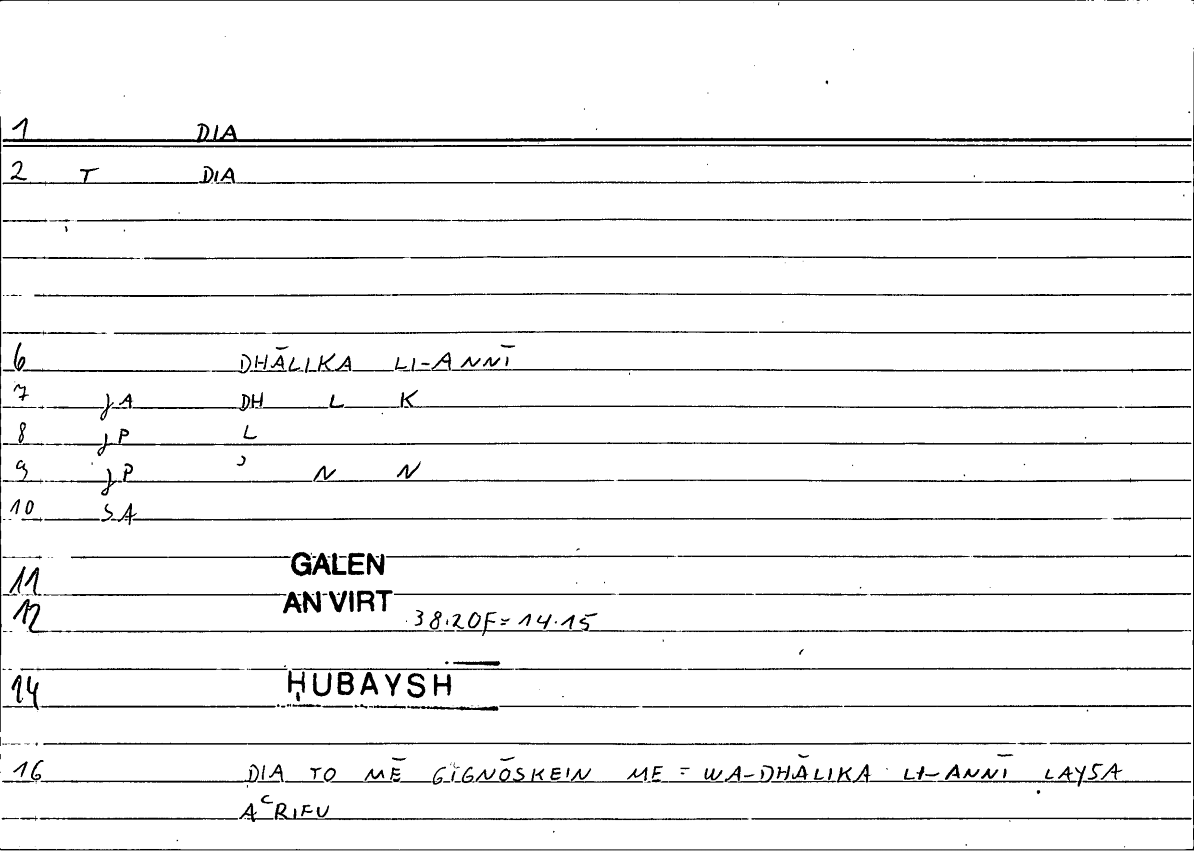 1 DIA
2 T DIA
6 DHĀLIKA LI-ANNĪ
7 JA DH L K
8 JP L
9 JP ʾ N N
10 SA
11 GALEN
12 AN VIRT 38.20F=14.15
14 ḤUBAYSH
16 DIA TO MĒ GIGNŌSKEIN ME = WA-DHĀLIKA LI-ANNĪ LAYSA
AʿRIFU